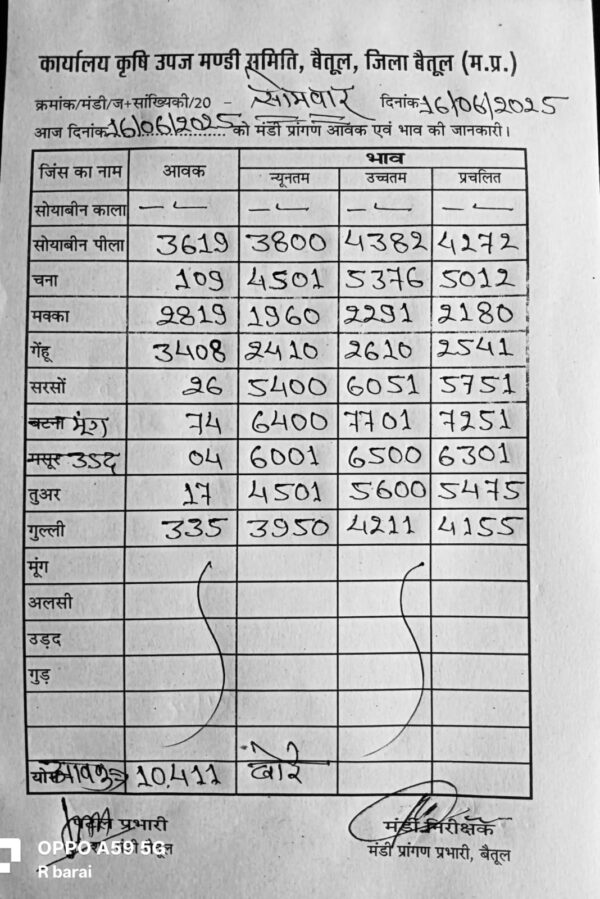 कार्यालय कृषि उपज मण्डी समिति, बैतूल, जिला बैतूल (म.प्र.)
क्रमांक/मंडी/ज+सांख्यिकी/20 - सोमवार दिनांक 16/06/2025
आज दिनांक 16/06/2025 को मंडी प्रांगण आवक एवं भाव की जानकारी।
जिंस का नाम आवक भाव
न्यूनतम उच्चतम प्रचलित
सोयाबीन काला - - - -
सोयाबीन पीला 3619 3800 4382 4272
चना 109 4501 5376 5012
मक्का 2819 1960 2291 2180
गेंहू 3408 2410 2610 2541
सरसों 26 5400 6051 5751
बटना मूंग 74 6400 7701 7251
मसूर उड़द 04 6001 6500 6301
तुअर 17 4501 5600 5475
गुल्ली 335 3950 4211 4155
मूंग
अलसी
उड़द
गुड़
10,411 बोरे
प्रभारी मंडी निरीक्षक
मंडी बैतूल मंडी प्रांगण प्रभारी, बैतूल
OPPO A59 5G
R barai